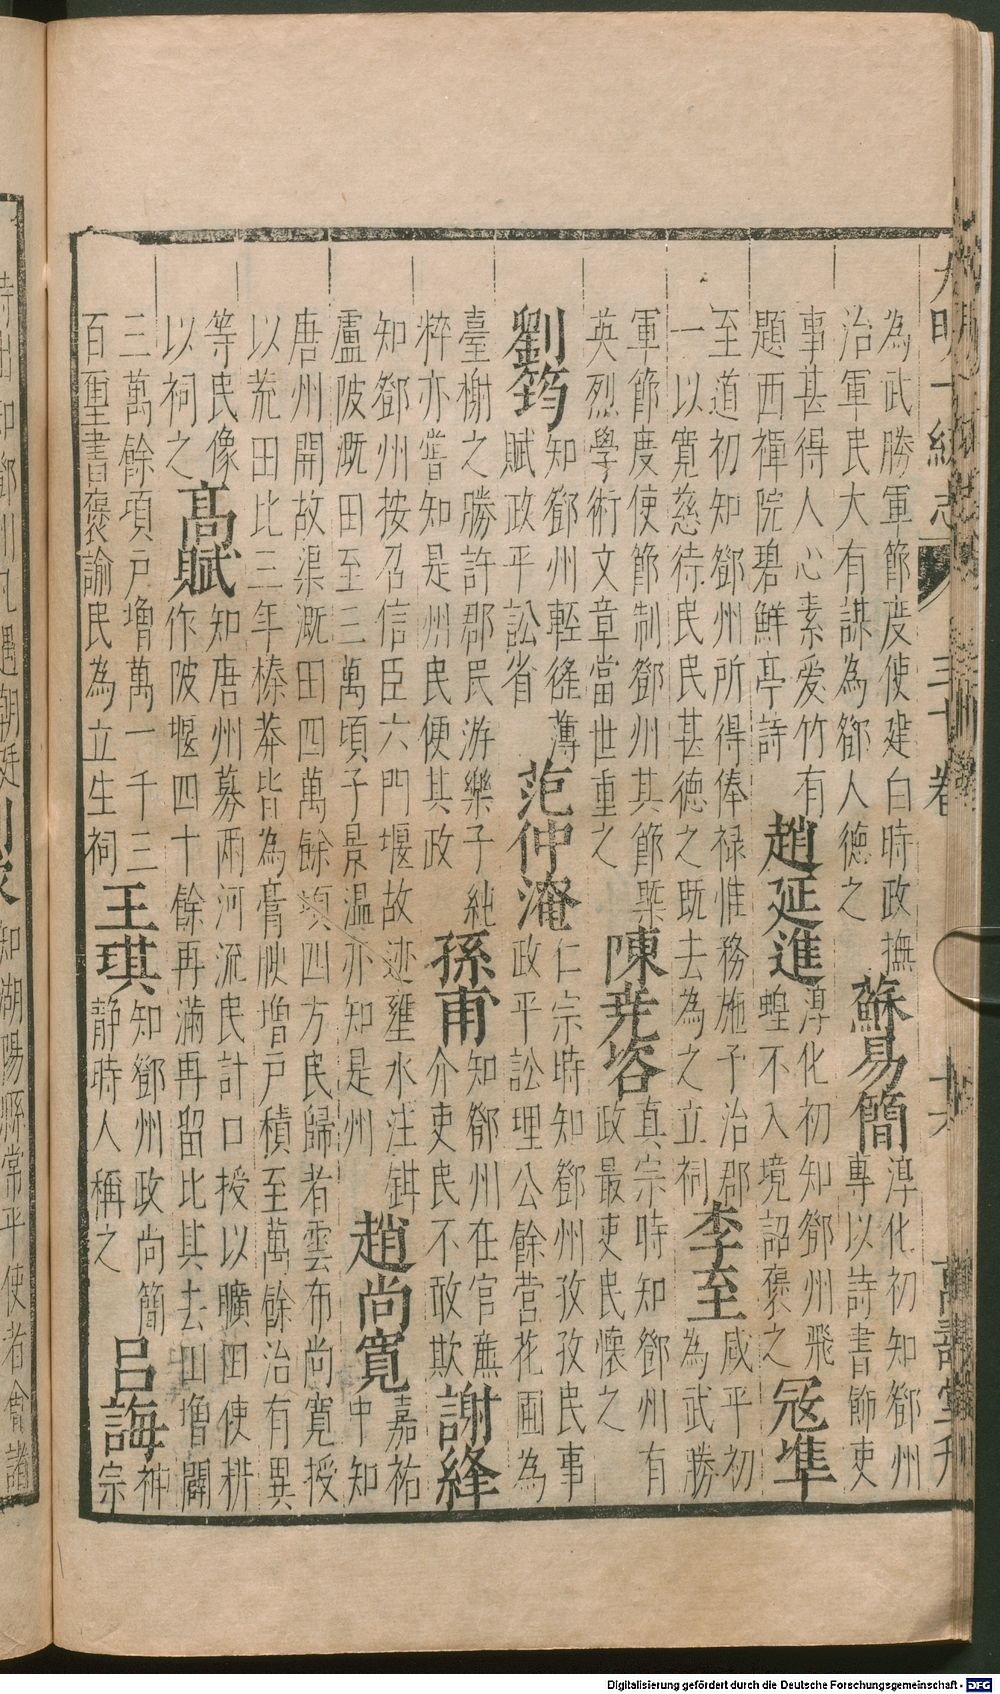 大明一統志 三十卷 十六 萬壽堂刊
為武勝軍節度使建白時政撫
治軍民大有謀為鄧人德之
蘇易簡
淳化初知鄧州
專以詩書飾吏
事甚得人心素爱竹有
題西禪院碧鮮亭詩
趙延進
淳化初知鄧州飛
蝗不入境詔褒之
冦準
至道初知鄧州所得俸禄惟務施予治郡
一以寛慈待民民甚德之既去為之立祠
李至
咸平初
為武勝
軍節度使節制鄧州其節槩
英烈學術文章當世重之
陳尭咨
真宗時知鄧州有
政最吏民懷之
劉筠
知鄧州輕徭薄
賦政平訟省
范仲淹
仁宗時知鄧州孜孜民事
政平訟理公餘营花圃為
臺榭之勝許郡民游樂子純
粹亦嘗知是州民便其政
孫甫
知鄧州在官蕉
介吏民不敢欺
謝絳
知鄧州按召信臣六門堰故迹壅水注鉗
盧陂溉田至三萬頃子景温亦知是州
趙尚寛
嘉祐
中知
唐州開故渠溉田四萬餘頃四方民歸者雲布尚寛授
以荒田比三年榛莽皆為膏腴增戶積至萬餘治有異
等民像
以祠之
高賦
知唐州募兩河流民計口授以曠田使耕
作陂堰四十餘再滿再留比其去田增闢
三萬餘頃戶增萬一千三
百璽書褒諭民為立生祠
王琪
知鄧州政尚簡
靜時人稱之
呂誨
神
宗
知鄧州凡遇朝廷
知湖陽縣常平使者會諸
Digitalisierung gefördert durch die Deutsche Forschungsgemeinschaft - DFG